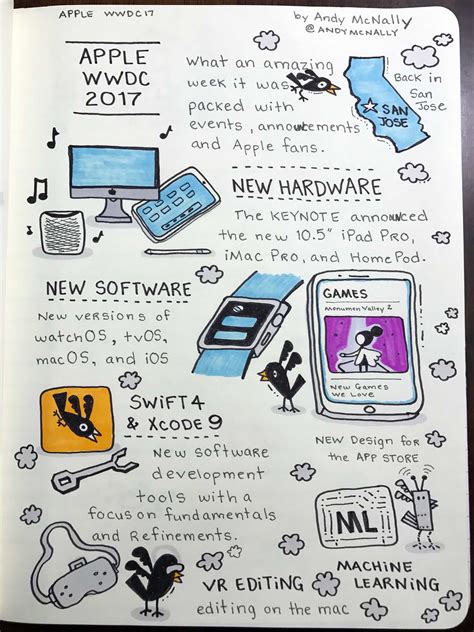 APPLE WWDC17
by Andy McNally
@ANDYMCNALLY
APPLE
WWDC
2017
What an amazing
week it was
packed with
events, announcements
and Apple fans.
Back in
San
Jose
SAN
JOSE
NEW HARDWARE
The KEYNOTE announced
the new 10.5" iPad Pro,
iMac Pro, and HomePod.
NEW SOFTWARE
New versions of
watchOS, tvOS,
macOS, and iOS
GAMES
Monumen Valley 2
New Games
We Love
SWiFT 4
& XCODE 9
New software
development
tools with a
focus on fundamentals
and Refinements.
New Design for
the APP STORE
ML
MACHINE
LEARNING
VR EDITING
editing on the mac